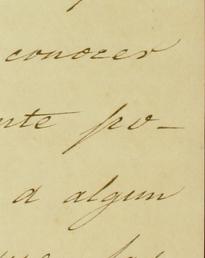 conocer
nte po-
a algun